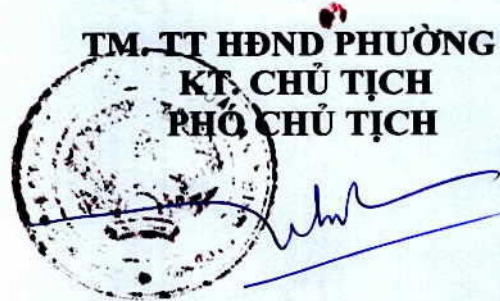 TM. TT HĐND PHƯỜNG
KT. CHỦ TỊCH
PHÓ CHỦ TỊCH